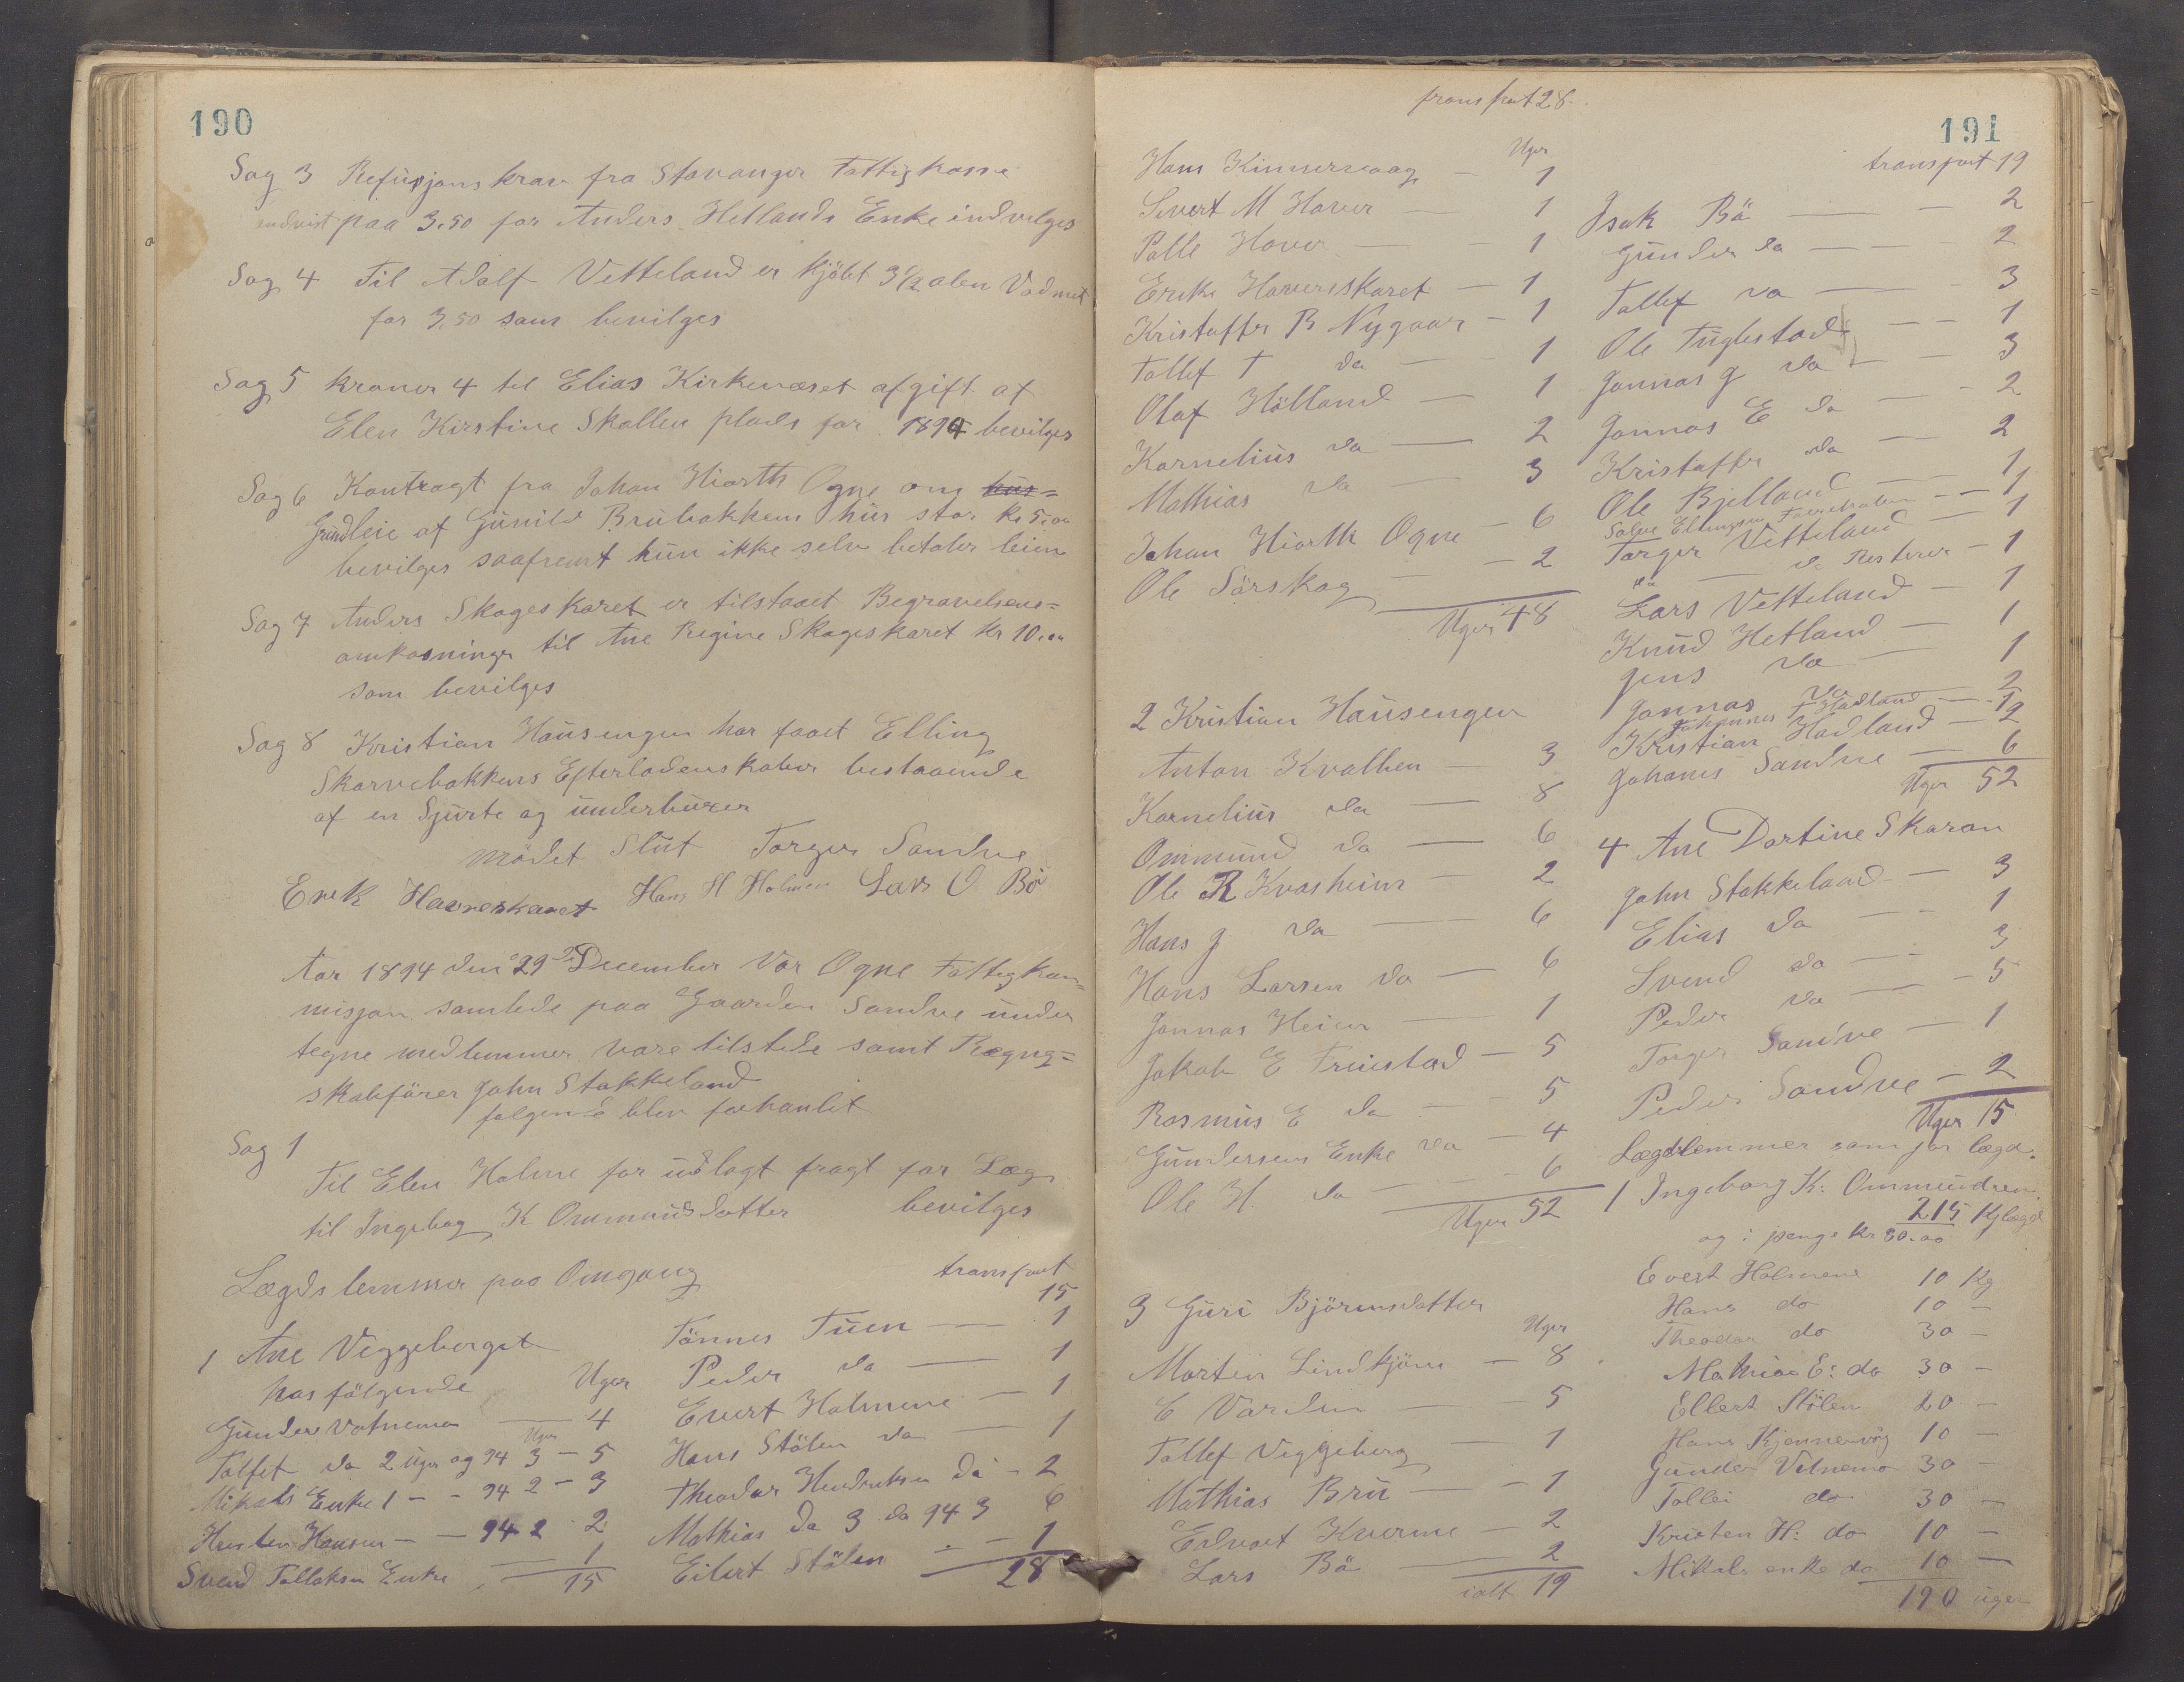 190
Sag 3 Refusjons krav fra Stavanger Fattigkasse
paa 3.50 for Anders Hetlands Enke indvilges
Sag 4 Til Adolf Vetteland er kjöbt 3 1/2 alen Vadmel
for 3.50 som bevilges
Sag 5 kroner 4 til Elias Kirkenæset afgift af
Elen Kirstine Skallen plads for 1894 bevilges
Sag 6 Kontragt fra Johan Hiorth Ogne om hus=
Grundleie af Gunild Brubakken hus stor kr 5.00
bevilges saafremt hun ikke selv betaler leien
Sag 7 Anders Skageskaret er tilstaaet Begravelsens=
omkosninger til Ane Regine Skageskaret kr 10.00
som bevilges
Sag 8 Kristian Hausengen har faaet Elling
Skarvebakkens Efterladenskaber bestaaende
af en Sjurte og underbuxer
Mödet Slut Torger Sandve
Erek Havreskaret Hans H Holmen Lars O Bö
Aar 1894 den 29de December Var Ogne Fattigkom=
misjon samlede paa Gaarden Sandve under
tegne medlemmer vare tilstede samt Regng=
skabförer John Stokkeland
folgende blev forhanlet
Sag 1
Til Elen Holme for udlagt fragt for Læg
til Ingebog K Ommundsdatter bevilges
Lægds lemmer paa Omgang
1 Ane Veggeberget
hos fölgende Uger
Gunder Vatnemo — 4
Tolfet do 2 uger og 94 3 Uger — 5
Mikals Enke 1 — - 94 2 — 3
Hansen — — 94 2 2
Svend Tollaksen Enke — 1
15
transport
15
Tönnes Tuen — 1
Peder do — 1
Evert Holmene — 1
Hans Stölen do — 1
Theodor Hendriksen do - 2
Mathias do 3 do 94 3 6
Eilert Stölen - — 1
28
transport 28
191
Uger
Hans Kinnervaag — 1
Sivert M Haver — 1
Palle Haver — 1
Erike Haverskaret — 1
Kristoffer B Nygaar — 1
Tollef T do — 1
Olaf Hölland — 1
Kornelius do — 2
Mathias do — 3
Johan Hiorth Ogne — 6
Ole Sörskog — 2
Uger 48
2 Kristian Hausengen
Anton Kvalben — 3
Kornelius do — 8
Ommund do — 6
Ole R Kvasheim — 2
Hans J do — 6
Hans Larsen do — 6
Jonnas Heien — 1
Jakob E Fruestad — 5
Rasmus E do — 5
Gundersens Enke do — 4
Ole H. do — 6
Uger 52
3 Guri Björnsdatter
Uger
Morten Lindtkjönn — 8
C Varden — 5
Tollef Veggeberg — 1
Mathias Bru — 1
Edvart Hverme — 2
Lars Bö — 2
ialt 19
transport 19
Isak Bö — 2
Gunder do — 2
Tollef do — 3
Ole Fuglestad — 1
Jonnas J do — 3
Jonnas E do — 2
Kristoffer do — 2
Ole Bjelland — 1
Salve Ellingsen — 1
Torger Vetteland — 1
do — 1
Lars Vetteland — 1
Knud Hetland — 1
Jens do — 1
Jonnas do — 2
Johannes T Hadland — 1
Kristian Hadland — 2
Johanes Sandve — 6
Uger 52
4 Ane Dortine Skaran
John Stokkeland — 3
Elias do — 1
Svend do — 3
Peder do — 5
Torger Sandve — 1
Peder Sandve — 2
Uger 15
Lægdslemmer som for lægd.
1 Ingeborg K: Ommundsen
215 Kg lægd
og i penge kr 30.00
Evert Holmene 10 Kg
Hans do 10 —
Theodor do 30 —
Mathias E: do 30 —
Ellert Stölen 20 —
Hans Kjennevåg 10 —
Gunder Vatnemo 30 —
Tollei do 30 —
Kristen H: do 10 —
Mikals enke do 10 —
190 uger